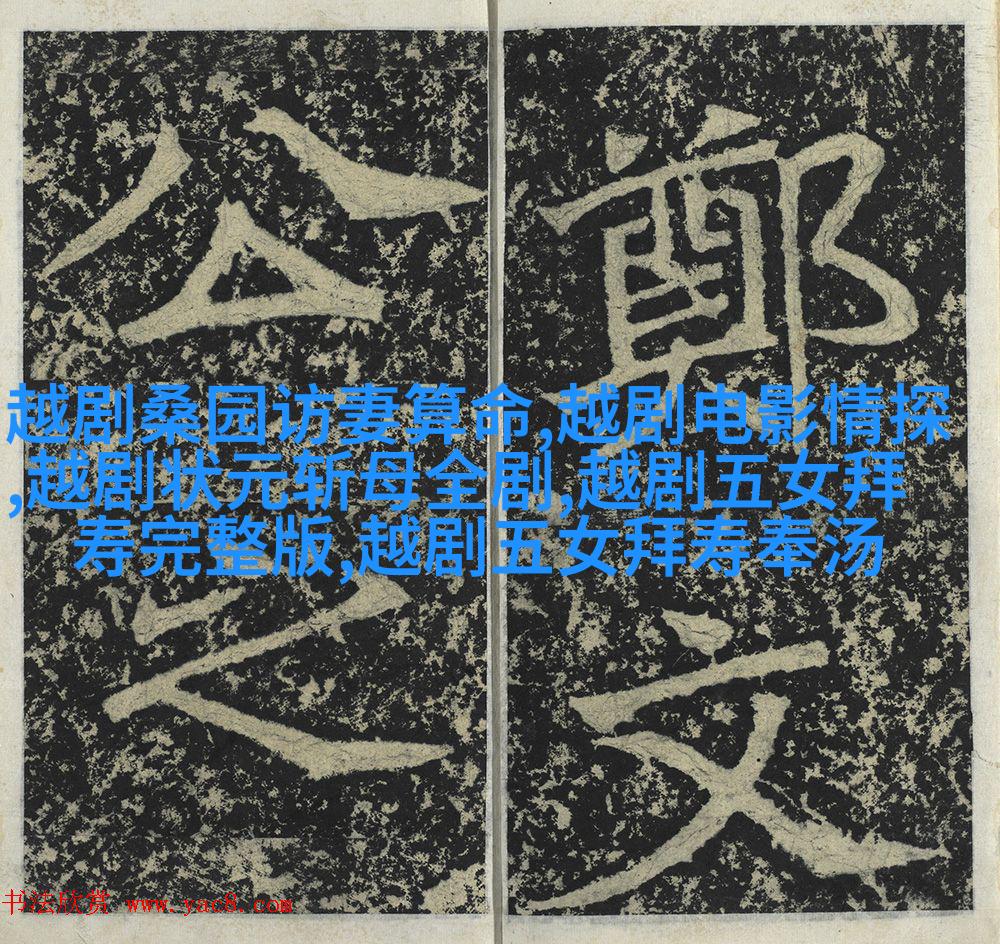 鄭文
公之
越剧桑园访妻算命,越剧电影情探
,越剧状元斩母全剧,越剧五女拜
寿完整版,越剧五女拜寿奉汤
书法欣赏 www.yac8.com